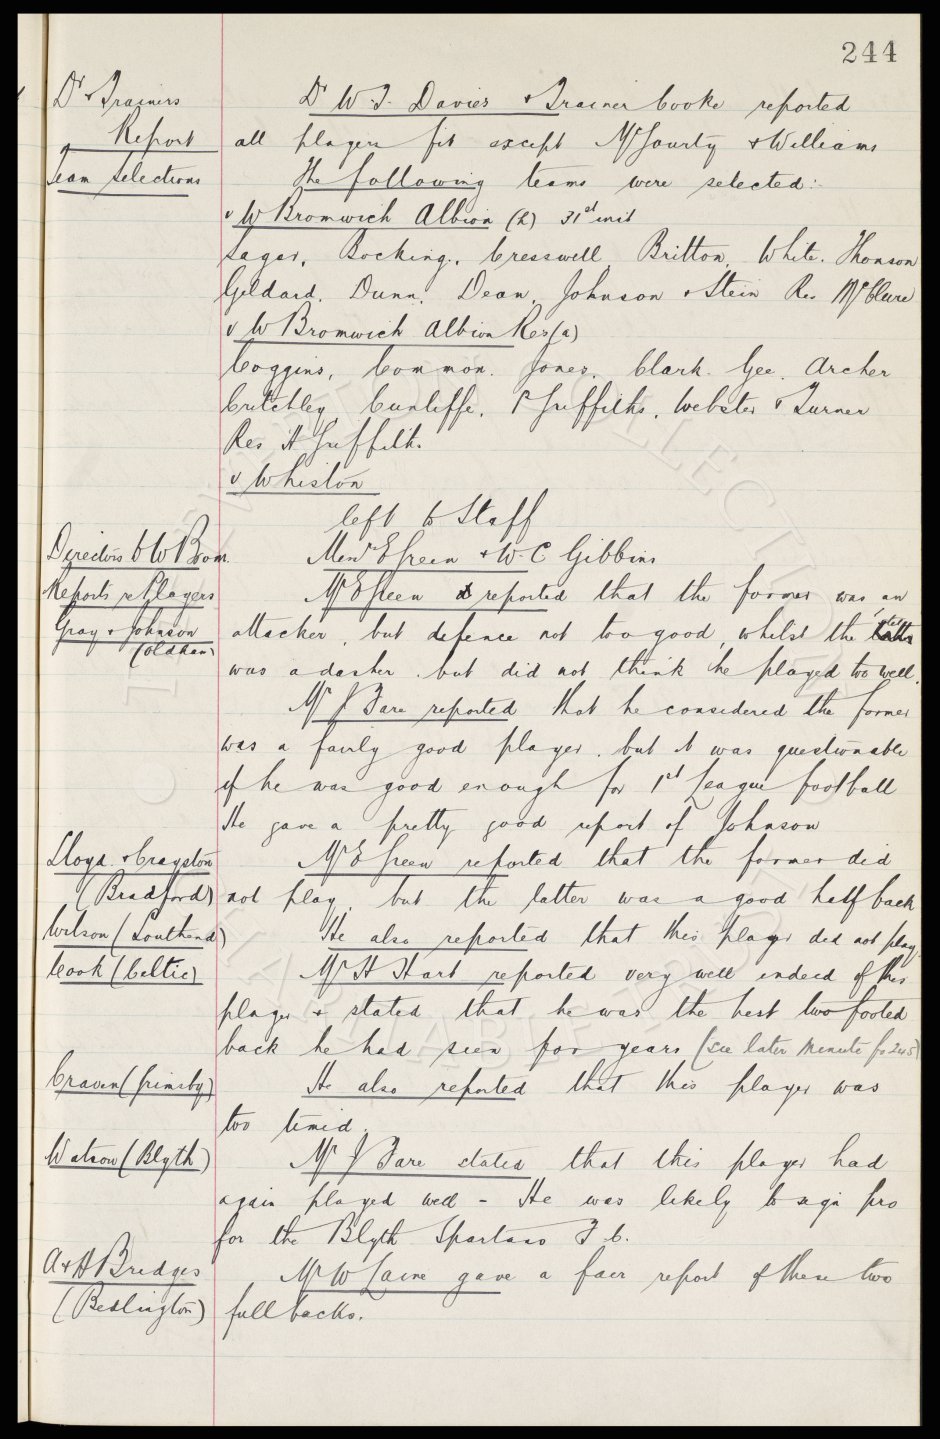 244
Dr & Trainers Dr W. J. Davies & Trainer Cooke reported
Report all players fit except McGourty & Williams
Team Selections The following teams were selected:-
v W Bromwich Albion (h) 31st inst
Sagar, Bocking, Cresswell Britton, White. Thomson
Geldard, Dunn, Dean, Johnson & Stein Res McClure
v W Bromwich Albion Res (a)
Coggins, Common. Jones, Clark. Gee. Archer
Critchley, Cunliffe, P Griffiths, Webster & Turner
Res H Griffiths
v Whiston
left to Staff
Directors to W Brom. Messrs E Green & W. C Gibbins
Reports re Players Mr E Green reported that the former was an
Gray & Johnson attacker, but defence not too good, whilst the latter
(Oldham)
was a dasher. but did not think he played too well.
Mr J Fare reported that he considered the former
was a fairly good player. but it was questionable
if he was good enough for 1st League football
He gave a pretty good report of Johnson
Lloyd & Crayston Mr E Green reported that the former did
(Bradford) not play, but the latter was a good half back
Wilson (Southend) He also reported that this player did not play
Cook (Celtic) Mr H Hart reported very well indeed of this
player & stated that he was the best two footed
back he had seen for years (see later minute fo 245)
Craven (Grimsby) He also reported that this player was
too timid.
Watson (Blyth) Mr J Fare stated that this player had
again played well - He was likely to sign pro
for the Blyth Spartans F. C.
A & H Bridges Mr W Laine gave a fair report of these two
(Bedlington) full backs.